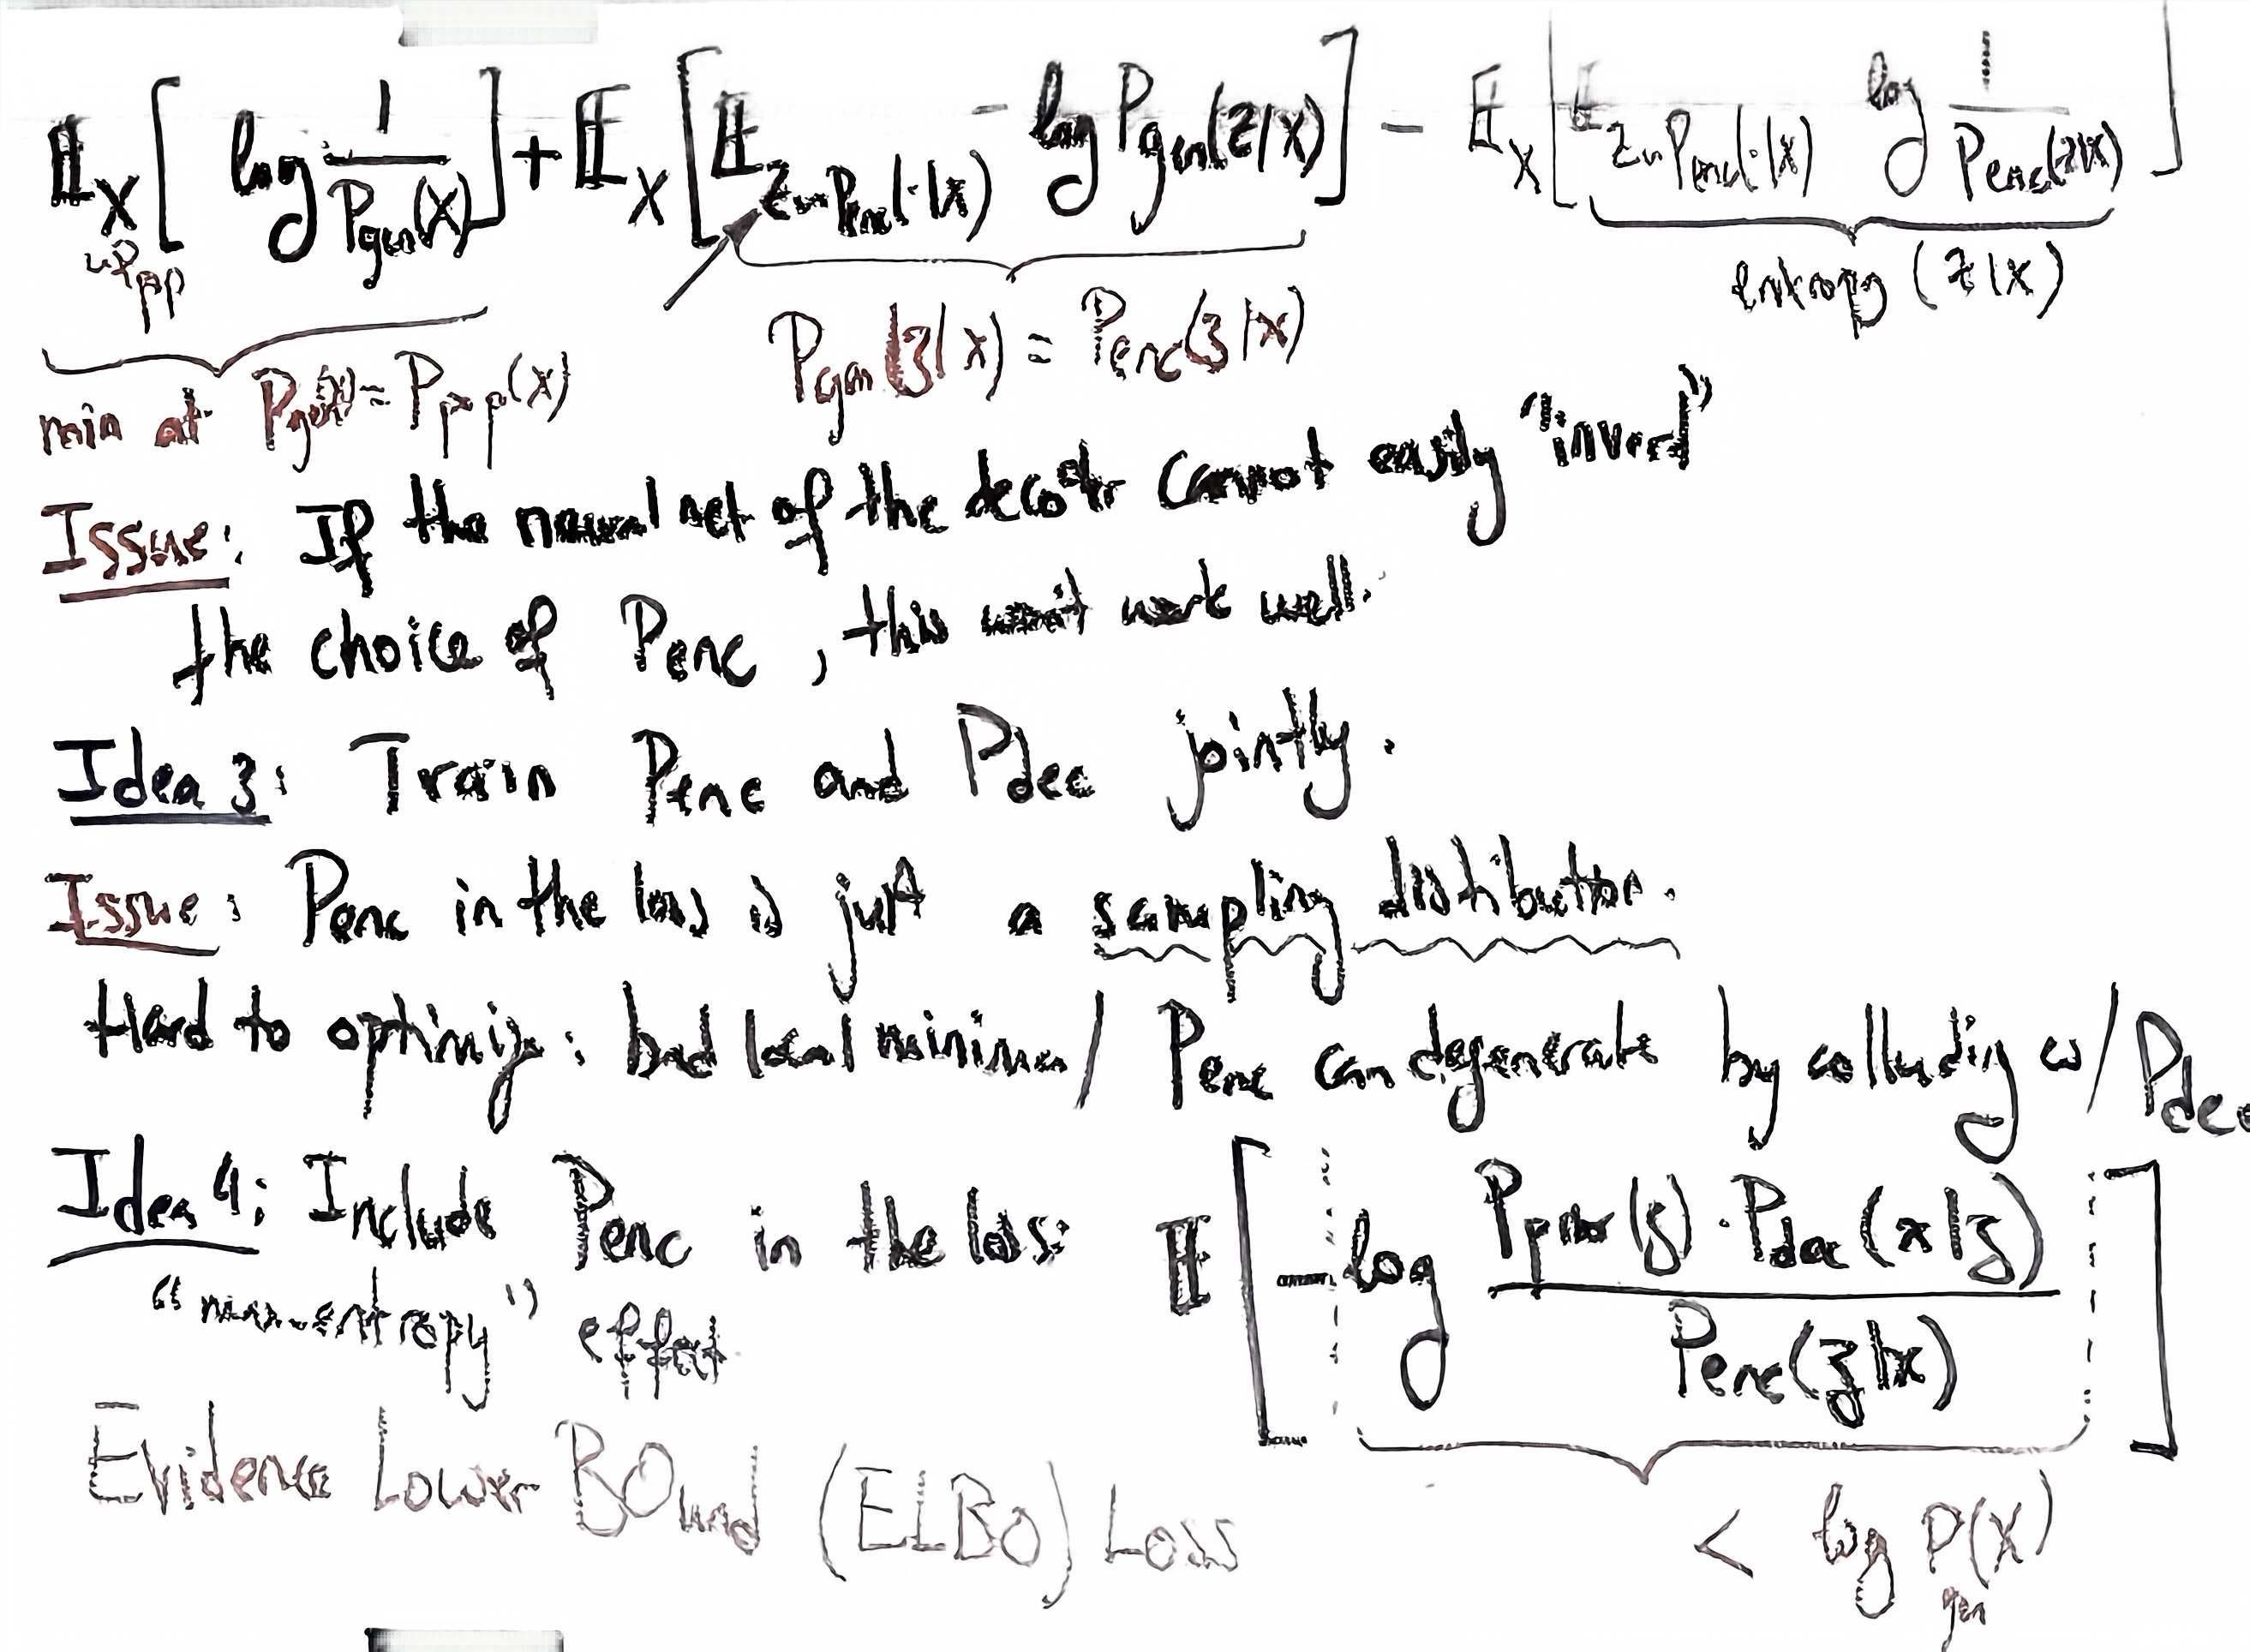 𝔼_X [ log 1/P_gen(X) ] + 𝔼_X [ 𝔼_{Z∼P_enc(·|X)} - log P_gen(Z|X) ] - 𝔼_X [ 𝔼_{Z∼P_enc(·|X)} log 1/P_enc(Z|X) ]
∼P_pp
entropy (Z|X)
min at P_gen(x) = P_pop(x)
P_gen(z|x) = P_enc(z|x)
Issue: If the neural net of the decoder cannot easily "invert"
the choice of Penc, this won't work well.
Idea 3: Train Penc and Pdec jointly.
Issue: Penc in the loss is just a sampling distribution.
Hard to optimize: bad local minima/ Penc can degenerate by colluding w/ Pdec
Idea 4: Include Penc in the loss: 𝔼 [ - log P_prior(z) · P_dec(x|z) / P_enc(z|x) ]
effect
Evidence Lower BOund (ELBO) Loss
< log P_gen(X)